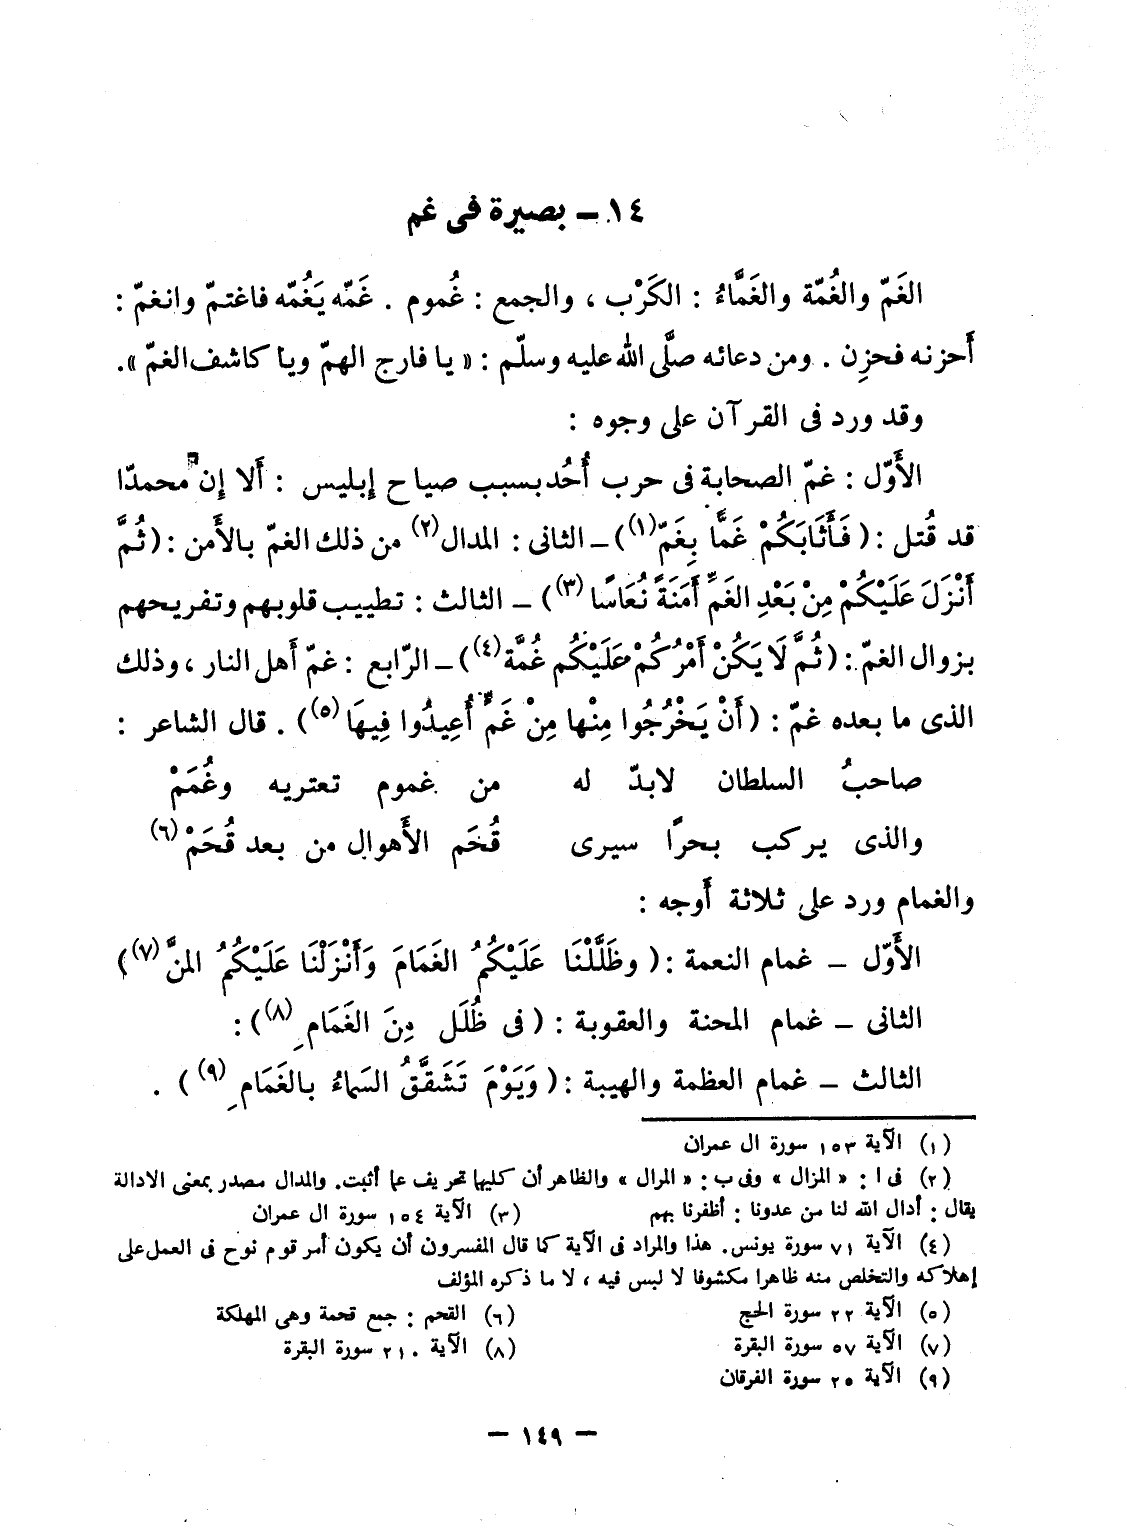 ١٤ – بصيرة فى غم
الغَمّ والغُمّة والغَمَّاءُ : الكَرْب ، والجمع : غُموم . غَمّه يَغُمّه فاغتمّ وانغمّ :
أَحزنه فحزِن . ومن دعائه صلَّى الله عليه وسلَّم : « يا فارج الهمّ ويا كاشف الغمّ ».
وقد ورد فى القرآن على وجوه :
الأَوّل : غمّ الصحابة فى حرب أُحُد بسبب صياح إبليس : أَلا إن محمدًا
قد قُتل : ( فَأَثَابَكُمْ غَمًّا بِغَمّ(١) ) – الثانى : المدال(٢) من ذلك الغمّ بالأَمن : ( ثُمَّ
أَنْزَلَ عَلَيْكُمْ مِنْ بَعْدِ الغَمِّ أَمَنَةً نُعَاسًا (٣) ) – الثالث : تطييب قلوبهم وتفريحهم
بزوال الغمّ : ( ثُمَّ لَا يَكُنْ أَمْرُكُمْ عَلَيْكُم غُمَّة(٤) ) – الرّابع : غمّ أَهل النار ، وذلك
الذى ما بعده غمّ : ( أَنْ يَخْرُجُوا مِنْها مِنْ غَمٍّ أُعِيدُوا فِيهَا (٥) ) . قال الشاعر :
صاحبُ السلطان لابدّ له من غموم تعتريه وغُمَمْ
والذى يركب بحرًا سيرى قُحَم الأَهوال من بعد قُحَمْ (٦)
والغمام ورد على ثلاثة أَوجه :
الأَوّل – غمام النعمة : ( وظَلَّلْنَا عَلَيْكُمُ الغَمَامَ وَأَنْزَلْنَا عَلَيْكُمُ المنَّ (٧) )
الثانى – غمام المحنة والعقوبة : ( فى ظُلَل مِنَ الغَمَامِ (٨) ) :
الثالث – غمام العظمة والهيبة : ( وَيَوْمَ تَشَقَّقُ السَماءُ بالغَمَامِ (٩) ) .
(١) الآية ١٥٣ سورة ال عمران
(٢) فى ا : « المزال » وفى ب : « المرال » والظاهر أن كليها تحريف عما أثبت. والمدال مصدر بمعنى الادالة
يقال : أدال الله لنا من عدونا : أظفرنا بهم (٣) الآية ١٥٤ سورة ال عمران
(٤) الآية ٧١ سورة يونس. هذا والمراد فى الآية كما قال المفسرون أن يكون أمر قوم نوح فى العمل على
إهلاكه والتخلص منه ظاهرا مكشوفا لا لبس فيه ، لا ما ذكره المؤلف
(٥) الآية ٢٢ سورة الحج (٦) القحم : جمع قحمة وهى المهلكة
(٧) الآية ٥٧ سورة البقرة (٨) الآية ٢١٠ سورة البقرة
(٩) الآية ٢٥ سورة الفرقان
– ١٤٩ –